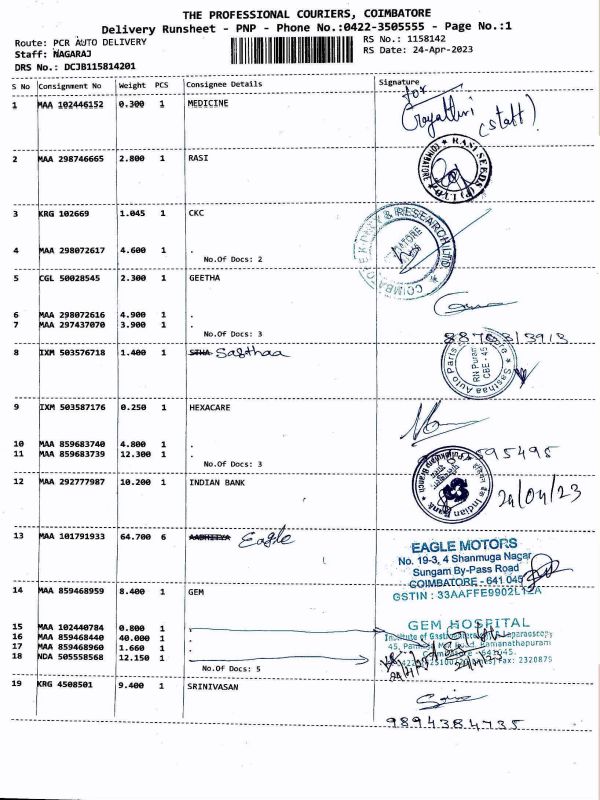 THE PROFESSIONAL COURIERS, COIMBATORE
Delivery Runsheet - PNP - Phone No.:0422-3505555 - Page No.:1
Route: PCR AUTO DELIVERY
RS No.: 1158142
Staff: NAGARAJ
RS Date: 24-Apr-2023
DRS No.: DCJB115814201
S No Consignment No Weight PCS Consignee Details Signature
1 MAA 102446152 0.300 1 MEDICINE
for
(staff)
2 MAA 298746665 2.800 1 RASI
RASI SEEDS (P) LTD * COIMBATORE *
3 KRG 102669 1.045 1 CKC
4 MAA 298072617 4.600 1 .
No.Of Docs: 2
5 CGL 50028545 2.300 1 GEETHA
6 MAA 298072616 4.900 1 .
7 MAA 297437070 3.900 1 .
No.Of Docs: 3
8 IXM 503576718 1.400 1 STHA Sasthaa
Sasthaa Auto Parts
RN Puram
CBE - 45
9 IXM 503587176 0.250 1 HEXACARE
10 MAA 859683740 4.800 1 .
11 MAA 859683739 12.300 1 .
595495
No.Of Docs: 3
12 MAA 292777987 10.200 1 INDIAN BANK
Indian Bank
24/04/23
13 MAA 101791933 64.700 6 AADHITYA Eagle
EAGLE MOTORS
No. 19-3, 4 Shanmuga Nagar
Sungam By-Pass Road
COIMBATORE - 641 045
GSTIN : 33AAFFE9902L1ZA
14 MAA 859468959 8.400 1 GEM
GEM HOSPITAL
15 MAA 102440784 0.800 1 .
16 MAA 859468440 40.000 1 .
17 MAA 859468960 1.660 1 .
Ramanathapuram
18 NDA 505558568 12.150 1 .
Fax: 2320879
No.Of Docs: 5
19 KRG 4508501 9.400 1 SRINIVASAN
9894384735